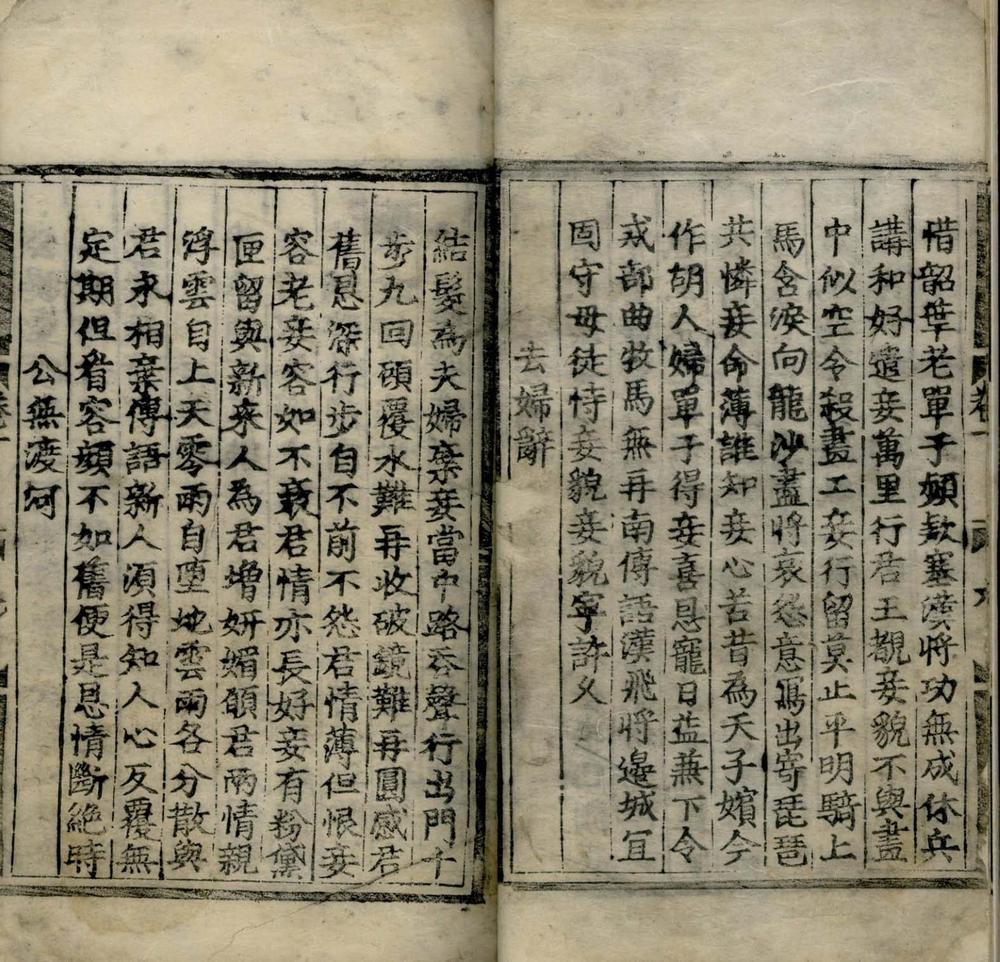 惜韶華老單于願欵塞漢將功無成休兵
講和好遣妾萬里行君王覩妾貌不與畫
中似空令殺畫工妾行留莫止平明騎上
馬含淚向龍沙盡將哀怨意寫出寄琵琶
共憐妾命薄誰知妾心苦昔爲天子嬪今
作胡人婦單于得妾喜恩寵日益兼下令
戒部曲牧馬無再南傳語漢飛將邊城宜
固守毋徒恃妾貌妾貌寧許久
去婦辭
卷一
九
結髮爲夫婦棄妾當中路吞聲行出門十
步九回頭覆水難再收破鏡難再圓感君
舊恩深行步自不前不怨君情薄但恨妾
容老妾容如不衰君情亦長好妾有粉黛
匣留與新来人為君増妍媚願君兩情親
浮雲自上天零雨自墮地雲雨各分散與
君永相棄傳語新人須得知人心反覆無
定期但看容顔不如舊便是恩情斷絶時
公無渡河